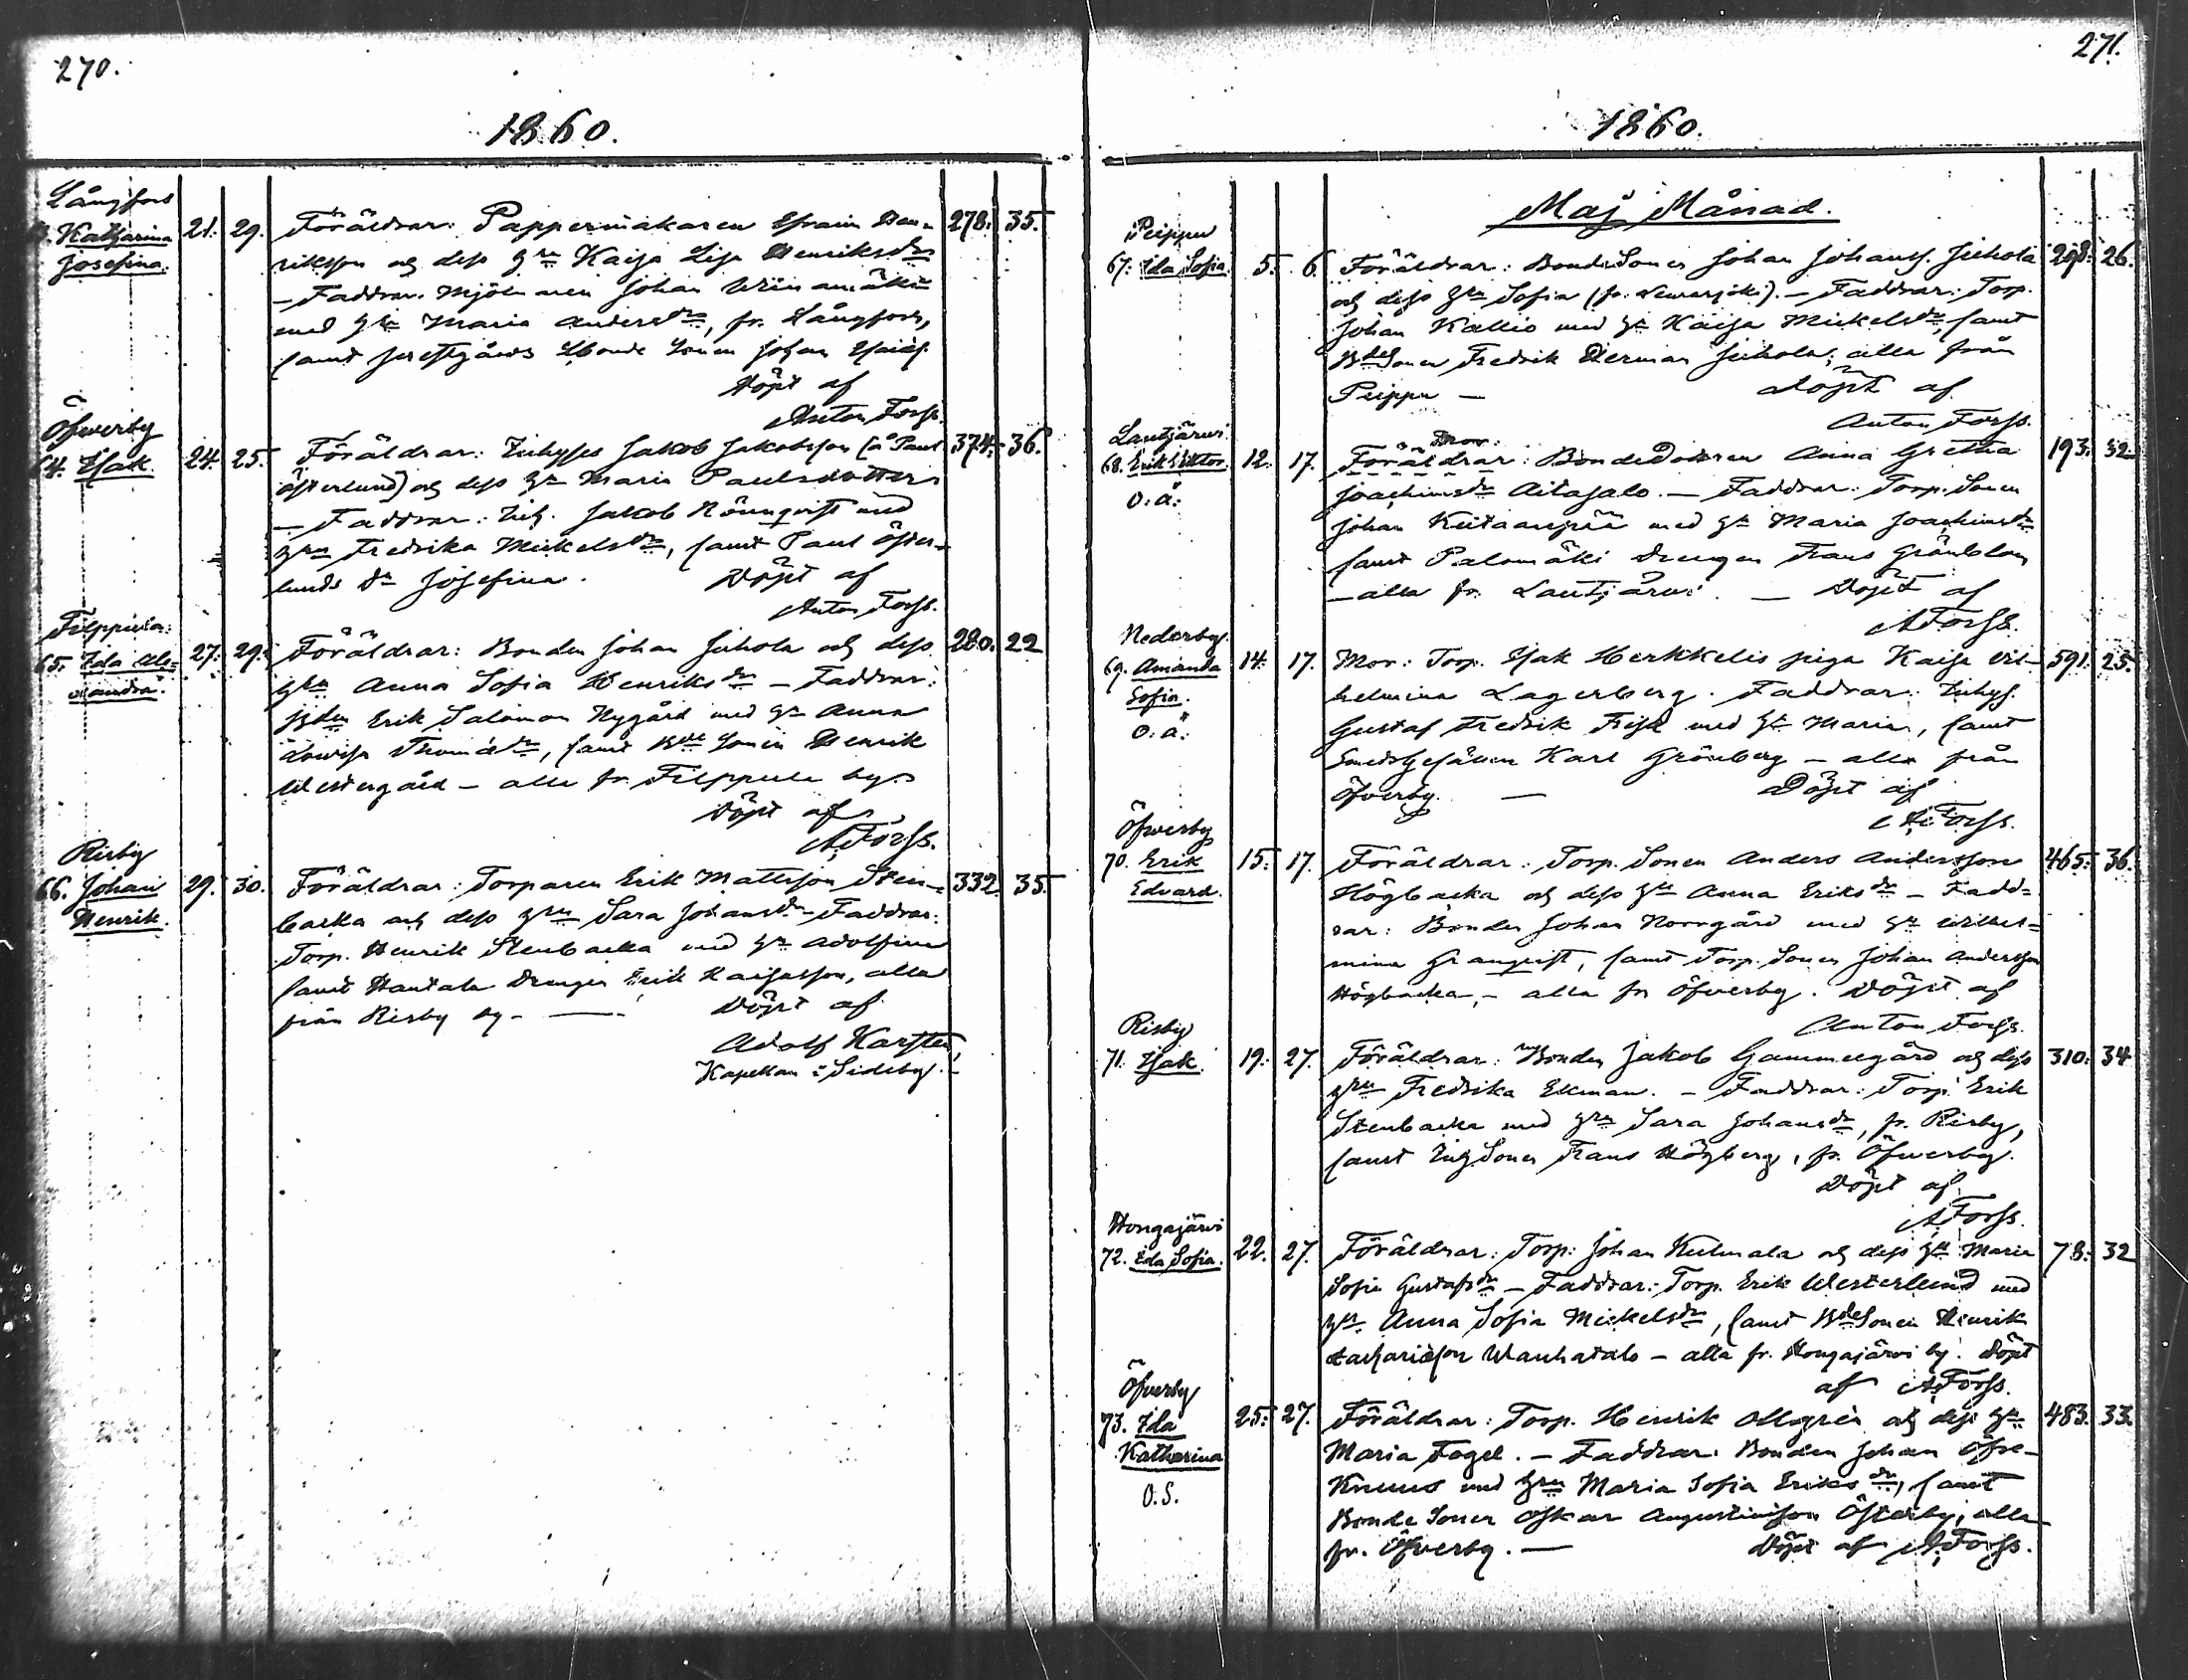 270.
1860.
Långfors
Katharina
Josefina.
21. 29. Föräldrar: Pappermakaren Efraim Hen-
riksson och dess hru Kaisa Lisa Henriksdr
— Faddrar. Mjölnaren Johan Wiinamäki
med hu Maria Andersdr, fr. Långfors,
samt Bonde Sonen Johan
278. 35.
Döpt af
Anton Forss.
Öfverby
64. Isak. 24. 25. Föräldrar: Inhyses Jakob Jakobsson (å Paul
Österlund) och dess hu Maria Paulsdotter
— Faddrar: Inh. Jakob Rönnqvist med
hru Fredrika Mickelsdr, samt Paul Öster-
lunds dr Josefina.
374. 36.
Döpt af
Anton Forss.
Filppula:
65. Ida Ale-
xandra. 27. 29. Föräldrar: Bonden Johan Juhola och dess
hru Anna Sofia Henriksdr — Faddrar:
Bden Erik Salomon Nygård med hu Anna
Lovisa Thomasdr, samt Bde Sonen Henrik
Westergård — alla fr. Filppula by.
280. 22
Döpt af
A. Forss.
Risby
66. Johan
Henrik. 29. 30. Föräldrar: Torparen Erik Mattsson Sten-
backa och dess hru Sara Johansdr — Faddrar:
Torp. Henrik Stenbacka med hu Adolfina
samt Hautala Drengen Erik Kaisasson, alla
från Risby by. —
332 35.
Döpt af
Adolf Karsten,
Kapellan i Sideby.
271.
1860.
Maj Månad.
Peippu
67. Ida Sofia. 5. 6. Föräldrar: BondeSonen Johan Johanss. Juhola
och dess hru Sofia (fr. ). — Faddrar: Torp.
Johan Kallio med hu Kaisa Mickelsdr, samt
BdeSonen Fredrik Herman Juhola, alla från
Peippu —
298. 26.
Döpt af
Anton Forss.
Lautjärvi
68. Erik Viktor.
O. ä. 12. 17. Mor:
Föräldrar: BondeDottren Anna Gretha
Joachimsdr Aitasalo. — Faddrar: Torp. Sonen
Johan med hu Maria Joachimsdr
samt Palomäki Drengen Frans Grönblom
— alla fr. Lautjärvi. — Döpt af
193. 32.
A Forss.
Nederby
69. Amanda
Sofia.
O. ä. 14. 17. Mor: Torp. Isak Herkkelis piga Kaisa Vil-
helmina Lagerberg. Faddrar: Inhys.
Gustaf Fredrik Frisk med hu Maria, samt
SmedsGesällen Karl Grönberg — alla från
Öfverby. — Döpt af
591. 25.
A. Forss.
Öfverby
70. Erik
Edvard. 15. 17. Föräldrar: Torp. Sonen Anders Andersson
Högbacka och dess hu Anna Eriksdr — Fadd-
rar: Bonden Johan Norrgård med hu Wilhel-
mina Granqvist, samt Torp. Sonen Johan Andersson
Högbacka, — alla fr. Öfverby. Döpt af
465. 36.
Anton Forss.
Risby
71. Isak. 19. 27. Föräldrar: Bonden Jakob Gammelgård och dess
hru Fredrika Ekman. — Faddrar: Torp. Erik
Stenbacka med hru Sara Johansdr, fr. Risby,
samt Inh. Sonen Frans Högberg, fr. Öfverby.
310. 34
Döpt af
A Forss.
Hongajärvi
72. Ida Sofia. 22. 27. Föräldrar: Torp: Johan Kulmala och dess hu Maria
Sofia Gustafsdr — Faddrar: Torp. Erik Westerlund med
hu Anna Sofia Mickelsdr, samt BdeSonen Henrik
Zachariasson Wanhatalo — alla fr. Hongajärvi by. Döpt
af A. Forss.
78. 32
Öfverby
73. Ida
Katharina
O. S. 25. 27. Föräldrar: Torp. Henrik Allgrén och dess hu
Maria Fogel. — Faddrar: Bonden Johan Öfre-
Knuus med hru Maria Sofia Eriksdr, samt
Bonde Sonen Oskar Augustinsson Österby, alla
fr. Öfverby. — Döpt af A. Forss.
483. 33.